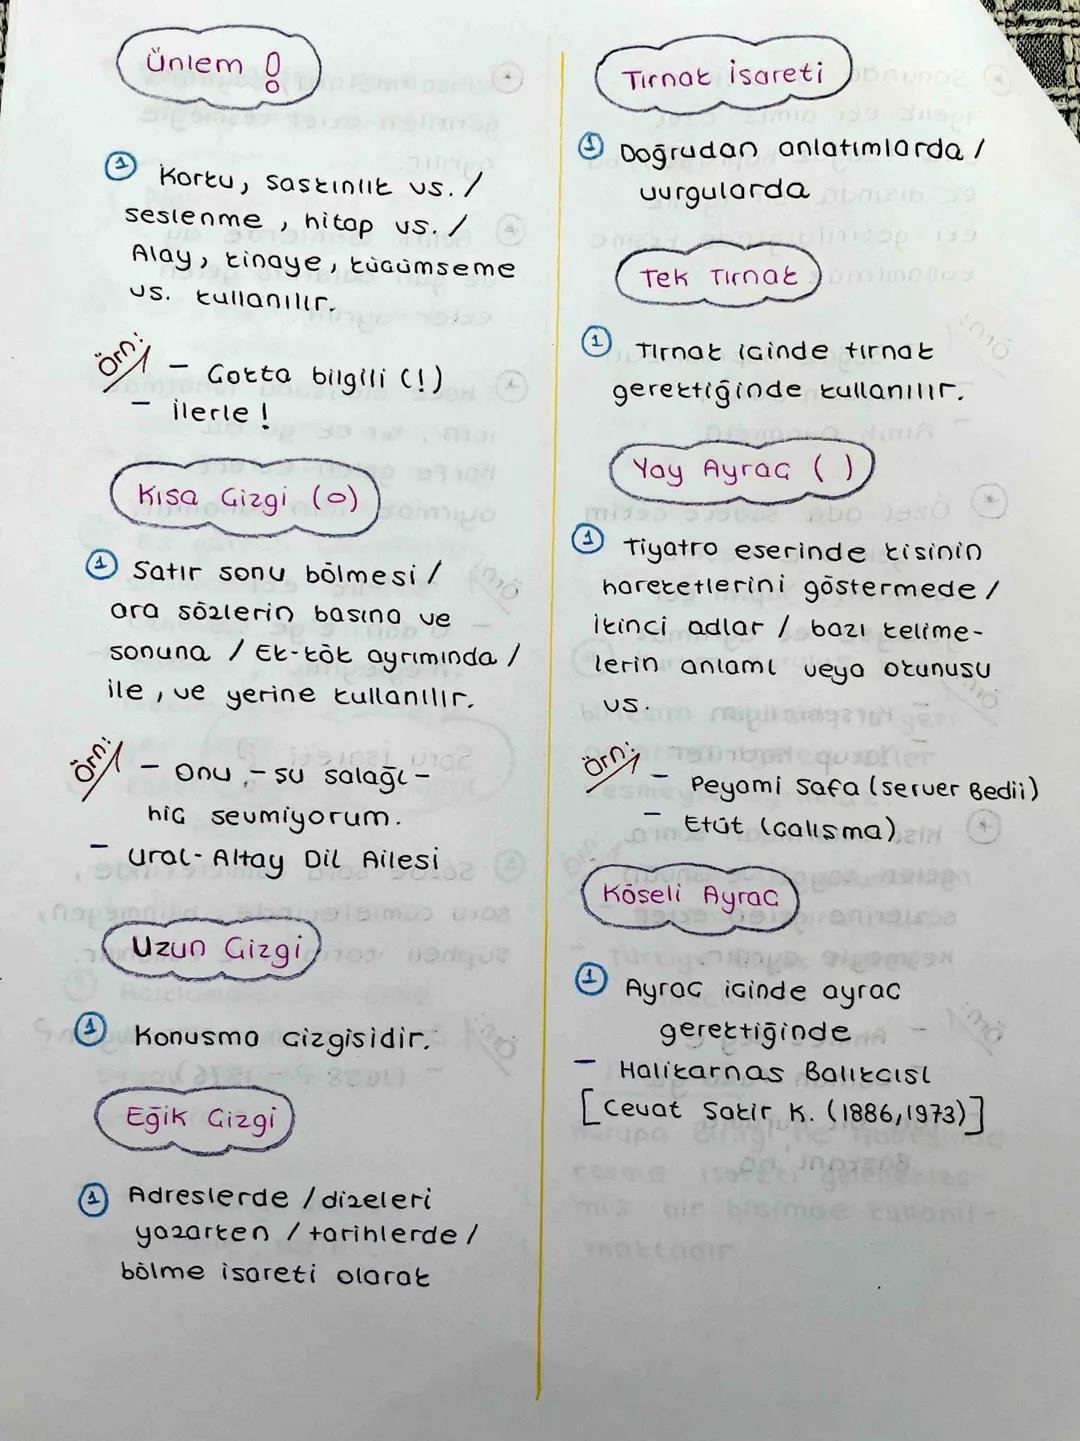 Ünlem !
1 Korku, saskınlık vs. /
seslenme, hitap vs. /
Alay, kinaye, kücümseme
vs. kullanılır.
Örn:
- Cokta bilgili (!)
- ilerle !
Kısa Cizgi (-)
1 Satır sonu bölmesi /
ara sözlerin basına ve
sonuna / Ek-kök ayrımında /
ile, ve yerine kullanılır.
Örn:
- Onu, - su salağı -
hic sevmiyorum.
- Ural-Altay Dil Ailesi
Uzun Cizgi
1 Konusma cizgisidir.
Eğik Cizgi
1 Adreslerde / dizeleri
yazarken / tarihlerde /
bölme isareti olarak
Tırnak isareti
1 Doğrudan anlatımlarda /
vurgularda
Tek Tırnak
1 Tırnak icinde tırnak
gerektiğinde kullanılır.
Yay Ayrac ( )
1 Tiyatro eserinde kisinin
hareketlerini göstermede /
ikinci adlar / bazı kelime-
lerin anlamı veya okunusu
vs.
Örn:
- Peyami Safa (Server Bedii)
- Etüt (calısma)
Köseli Ayrac
1 Ayrac icinde ayrac
gerektiğinde
- Halikarnas Balıkcısı
[Cevat Sakir K. (1886,1973)]